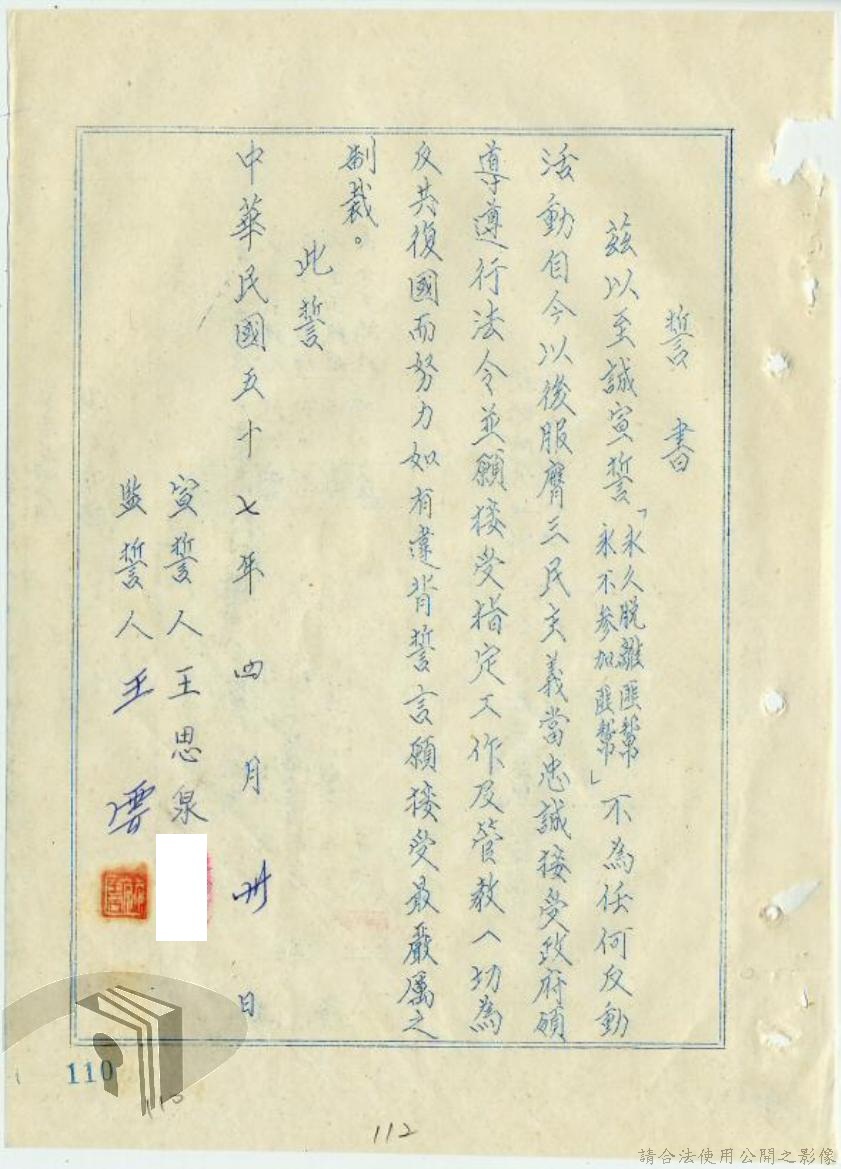 誓書
茲以至誠宣誓「永久脫離匪幫永不參加匪幫」不為任何反動
活動自今以後服膺三民主義當忠誠接受政府領
導遵行法令並願接受指定工作及管教一切為
反共復國而努力如有違背誓言願接受最嚴厲之
制裁。
此誓
中華民國五十七年四月卅日
宣誓人王思泉
監誓人王雲
110
110
112
請合法使用公開之影像